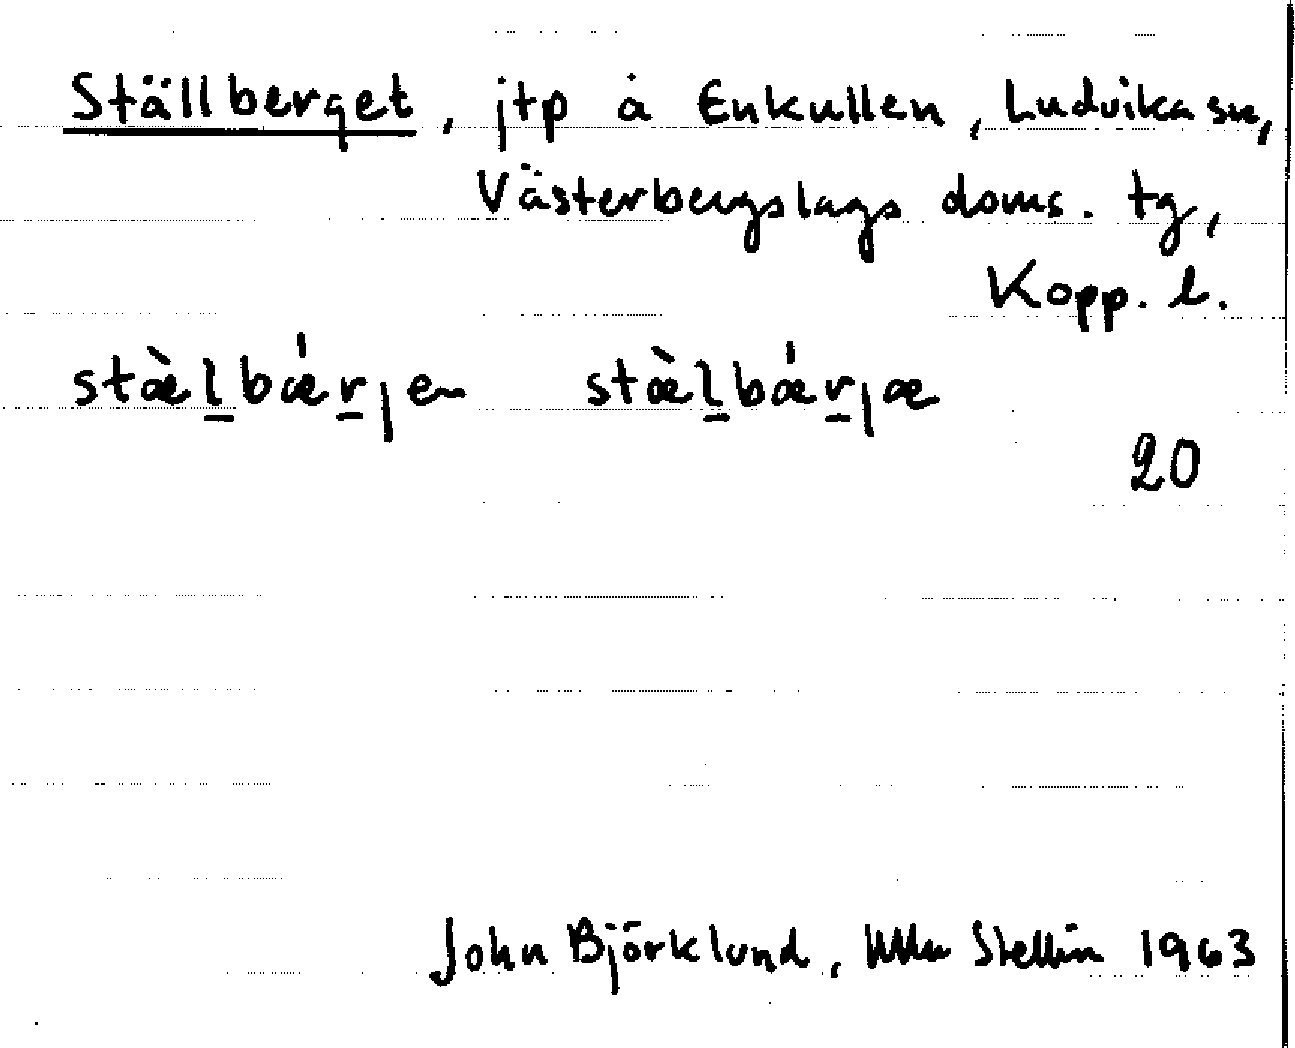 Ställberget, jtp å Enkullen, Ludvika sn,
Västerbergslags doms. tg,
Kopp. l.
stæ̀l̲bǽr̲jen stæ̀l̲bǽr̲jæ
20
John Björklund, Ulla Stellin 1963